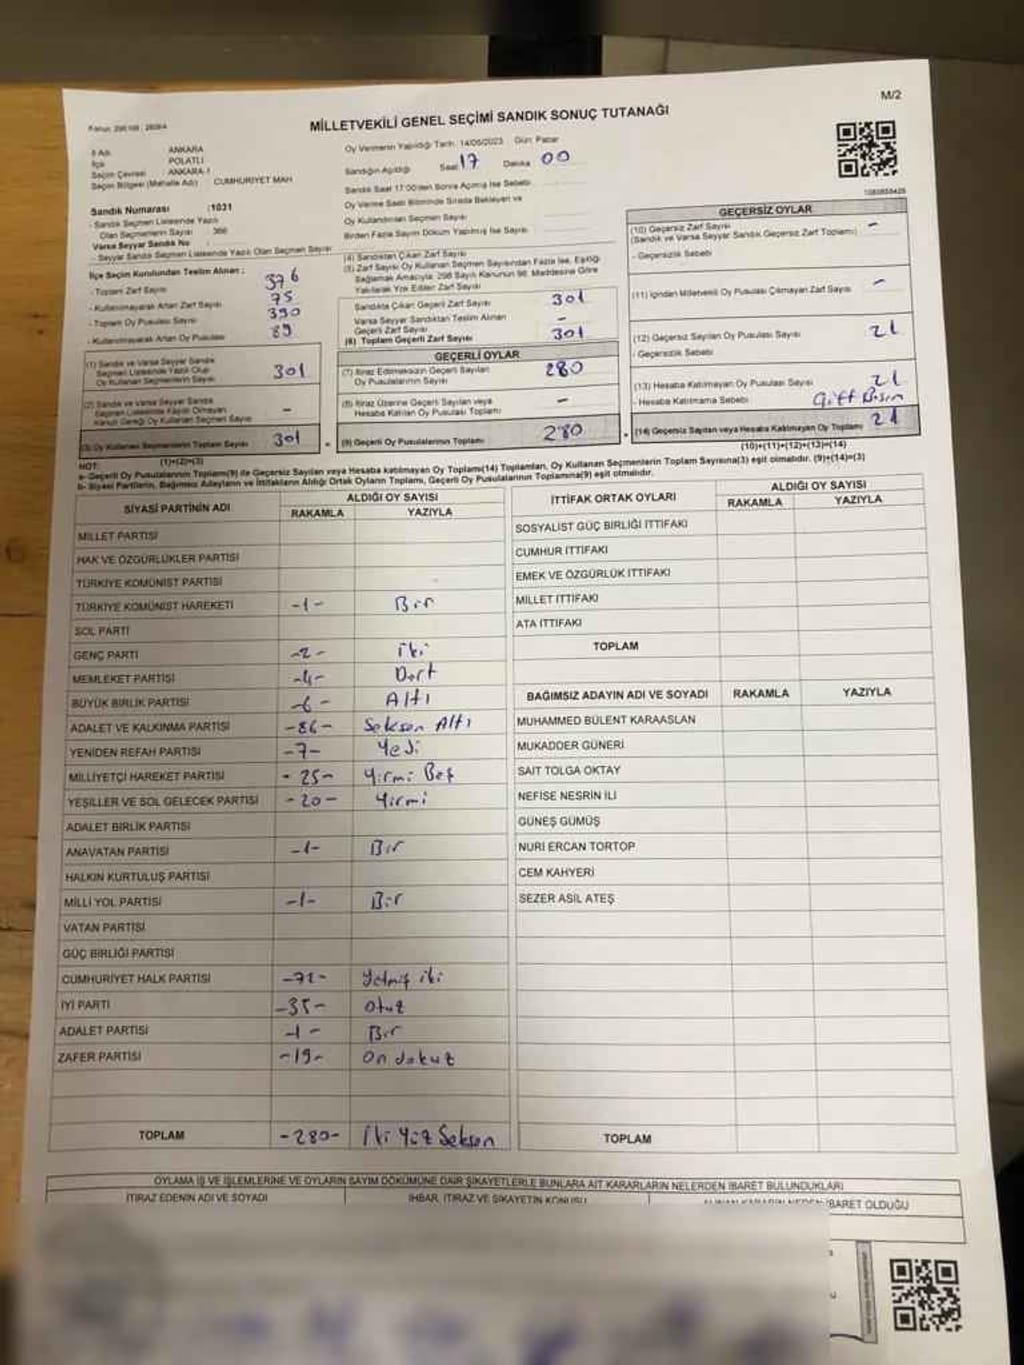 M/2
MİLLETVEKİLİ GENEL SEÇİMİ SANDIK SONUÇ TUTANAĞI
İl Adı ANKARA
İlçe POLATLI
Seçim Çevresi ANKARA-1
Seçim Bölgesi (Mahalle Adı) CUMHURİYET MAH
Sandık Numarası :1031
- Sandık Seçmen Listesinde Yazılı
Olan Seçmenlerin Sayısı 366
Varsa Seyyar Sandık No
- Seyyar Sandık Seçmen Listesinde Yazılı Olan Seçmen Sayısı
Oy Vermenin Yapıldığı Tarih: 14/05/2023 Gün: Pazar
Sandığın Açıldığı Saat 17 Dakika 00
Sandık Saat 17:00'den Sonra Açılmış İse Sebebi
Oy Verme Saati Bitiminde Sırada Bekleyen ve
Oy Kullandırılan Seçmen Sayısı
Birden Fazla Sayım Döküm Yapılmış İse Sayısı
İlçe Seçim Kurulundan Teslim Alınan :
- Toplam Zarf Sayısı 376
- Kullanılmayarak Artan Zarf Sayısı 75
- Toplam Oy Pusulası Sayısı 390
- Kullanılmayarak Artan Oy Pusulası 89
(1) Sandık ve Varsa Seyyar Sandık
Seçmen Listesinde Yazılı Olup
Oy Kullanan Seçmenlerin Sayısı 301
(2) Sandık ve Varsa Seyyar Sandık
Seçmen Listesinde Kaydı Olmayan
Kanun Gereği Oy Kullanan Seçmen Sayısı -
(3) Oy Kullanan Seçmenlerin Toplam Sayısı 301
(1)+(2)=(3)
(4) Sandıktan Çıkan Zarf Sayısı
(5) Zarf Sayısı Oy Kullanan Seçmen Sayısından Fazla İse, Eşitliği
Sağlamak Amacıyla 298 Sayılı Kanunun 98. Maddesine Göre
Yakılarak Yok Edilen Zarf Sayısı
Sandıkta Çıkan Geçerli Zarf Sayısı 301
Varsa Seyyar Sandıktan Teslim Alınan
Geçerli Zarf Sayısı -
(6) Toplam Geçerli Zarf Sayısı 301
GEÇERLİ OYLAR
(7) İtiraz Edilmeksizin Geçerli Sayılan
Oy Pusulalarının Sayısı 280
(8) İtiraz Üzerine Geçerli Sayılan veya
Hesaba Katılan Oy Pusulası Toplamı -
(9) Geçerli Oy Pusulalarının Toplamı 280
GEÇERSİZ OYLAR
(10) Geçersiz Zarf Sayısı -
(Sandık ve Varsa Seyyar Sandık Geçersiz Zarf Toplamı)
- Geçersizlik Sebebi
(11) İçinden Milletvekili Oy Pusulası Çıkmayan Zarf Sayısı -
(12) Geçersiz Sayılan Oy Pusulası Sayısı 21
- Geçersizlik Sebebi
(13) Hesaba Katılmayan Oy Pusulası Sayısı 21
- Hesaba Katılmama Sebebi Çift Basım
(14) Geçersiz Sayılan veya Hesaba Katılmayan Oy Toplamı 21
(10)+(11)+(12)+(13)=(14)
NOT:
a- Geçerli Oy Pusulalarının Toplamı(9) ile Geçersiz Sayılan veya Hesaba katılmayan Oy Toplamı(14) Toplamları, Oy Kullanan Seçmenlerin Toplam Sayısına(3) eşit olmalıdır. (9)+(14)=(3)
b- Siyasi Partilerin, Bağımsız Adayların ve İttifakların Aldığı Ortak Oyların Toplamı, Geçerli Oy Pusulalarının Toplamına(9) eşit olmalıdır.
SİYASİ PARTİNİN ADI ALDIĞI OY SAYISI
RAKAMLA YAZIYLA
MİLLET PARTİSİ
HAK VE ÖZGÜRLÜKLER PARTİSİ
TÜRKİYE KOMÜNİST PARTİSİ
TÜRKİYE KOMÜNİST HAREKETİ -1- Bir
SOL PARTİ
GENÇ PARTİ -2- iki
MEMLEKET PARTİSİ -4- Dört
BÜYÜK BİRLİK PARTİSİ -6- Altı
ADALET VE KALKINMA PARTİSİ -86- Seksen Altı
YENİDEN REFAH PARTİSİ -7- Yedi
MİLLİYETÇİ HAREKET PARTİSİ -25- Yirmi Beş
YEŞİLLER VE SOL GELECEK PARTİSİ -20- Yirmi
ADALET BİRLİK PARTİSİ
ANAVATAN PARTİSİ -1- Bir
HALKIN KURTULUŞ PARTİSİ
MİLLİ YOL PARTİSİ -1- Bir
VATAN PARTİSİ
GÜÇ BİRLİĞİ PARTİSİ
CUMHURİYET HALK PARTİSİ -72- Yetmiş iki
İYİ PARTİ -35- Otuz
ADALET PARTİSİ -1- Bir
ZAFER PARTİSİ -19- On dokuz
TOPLAM -280- İki Yüz Seksen
İTTİFAK ORTAK OYLARI ALDIĞI OY SAYISI
RAKAMLA YAZIYLA
SOSYALİST GÜÇ BİRLİĞİ İTTİFAKI
CUMHUR İTTİFAKI
EMEK VE ÖZGÜRLÜK İTTİFAKI
MİLLET İTTİFAKI
ATA İTTİFAKI
TOPLAM
BAĞIMSIZ ADAYIN ADI VE SOYADI RAKAMLA YAZIYLA
MUHAMMED BÜLENT KARAASLAN
MUKADDER GÜNERİ
SAİT TOLGA OKTAY
NEFİSE NESRİN İLİ
GÜNEŞ GÜMÜŞ
NURİ ERCAN TORTOP
CEM KAHYERİ
SEZER ASIL ATEŞ
TOPLAM
OYLAMA İŞ VE İŞLEMLERİNE VE OYLARIN SAYIM DÖKÜMÜNE DAİR ŞİKAYETLERLE BUNLARA AİT KARARLARIN NELERDEN İBARET BULUNDUKLARI
İTİRAZ EDENİN ADI VE SOYADI İHBAR, İTİRAZ VE ŞİKAYETİN KONUSU İBARET OLDUĞU